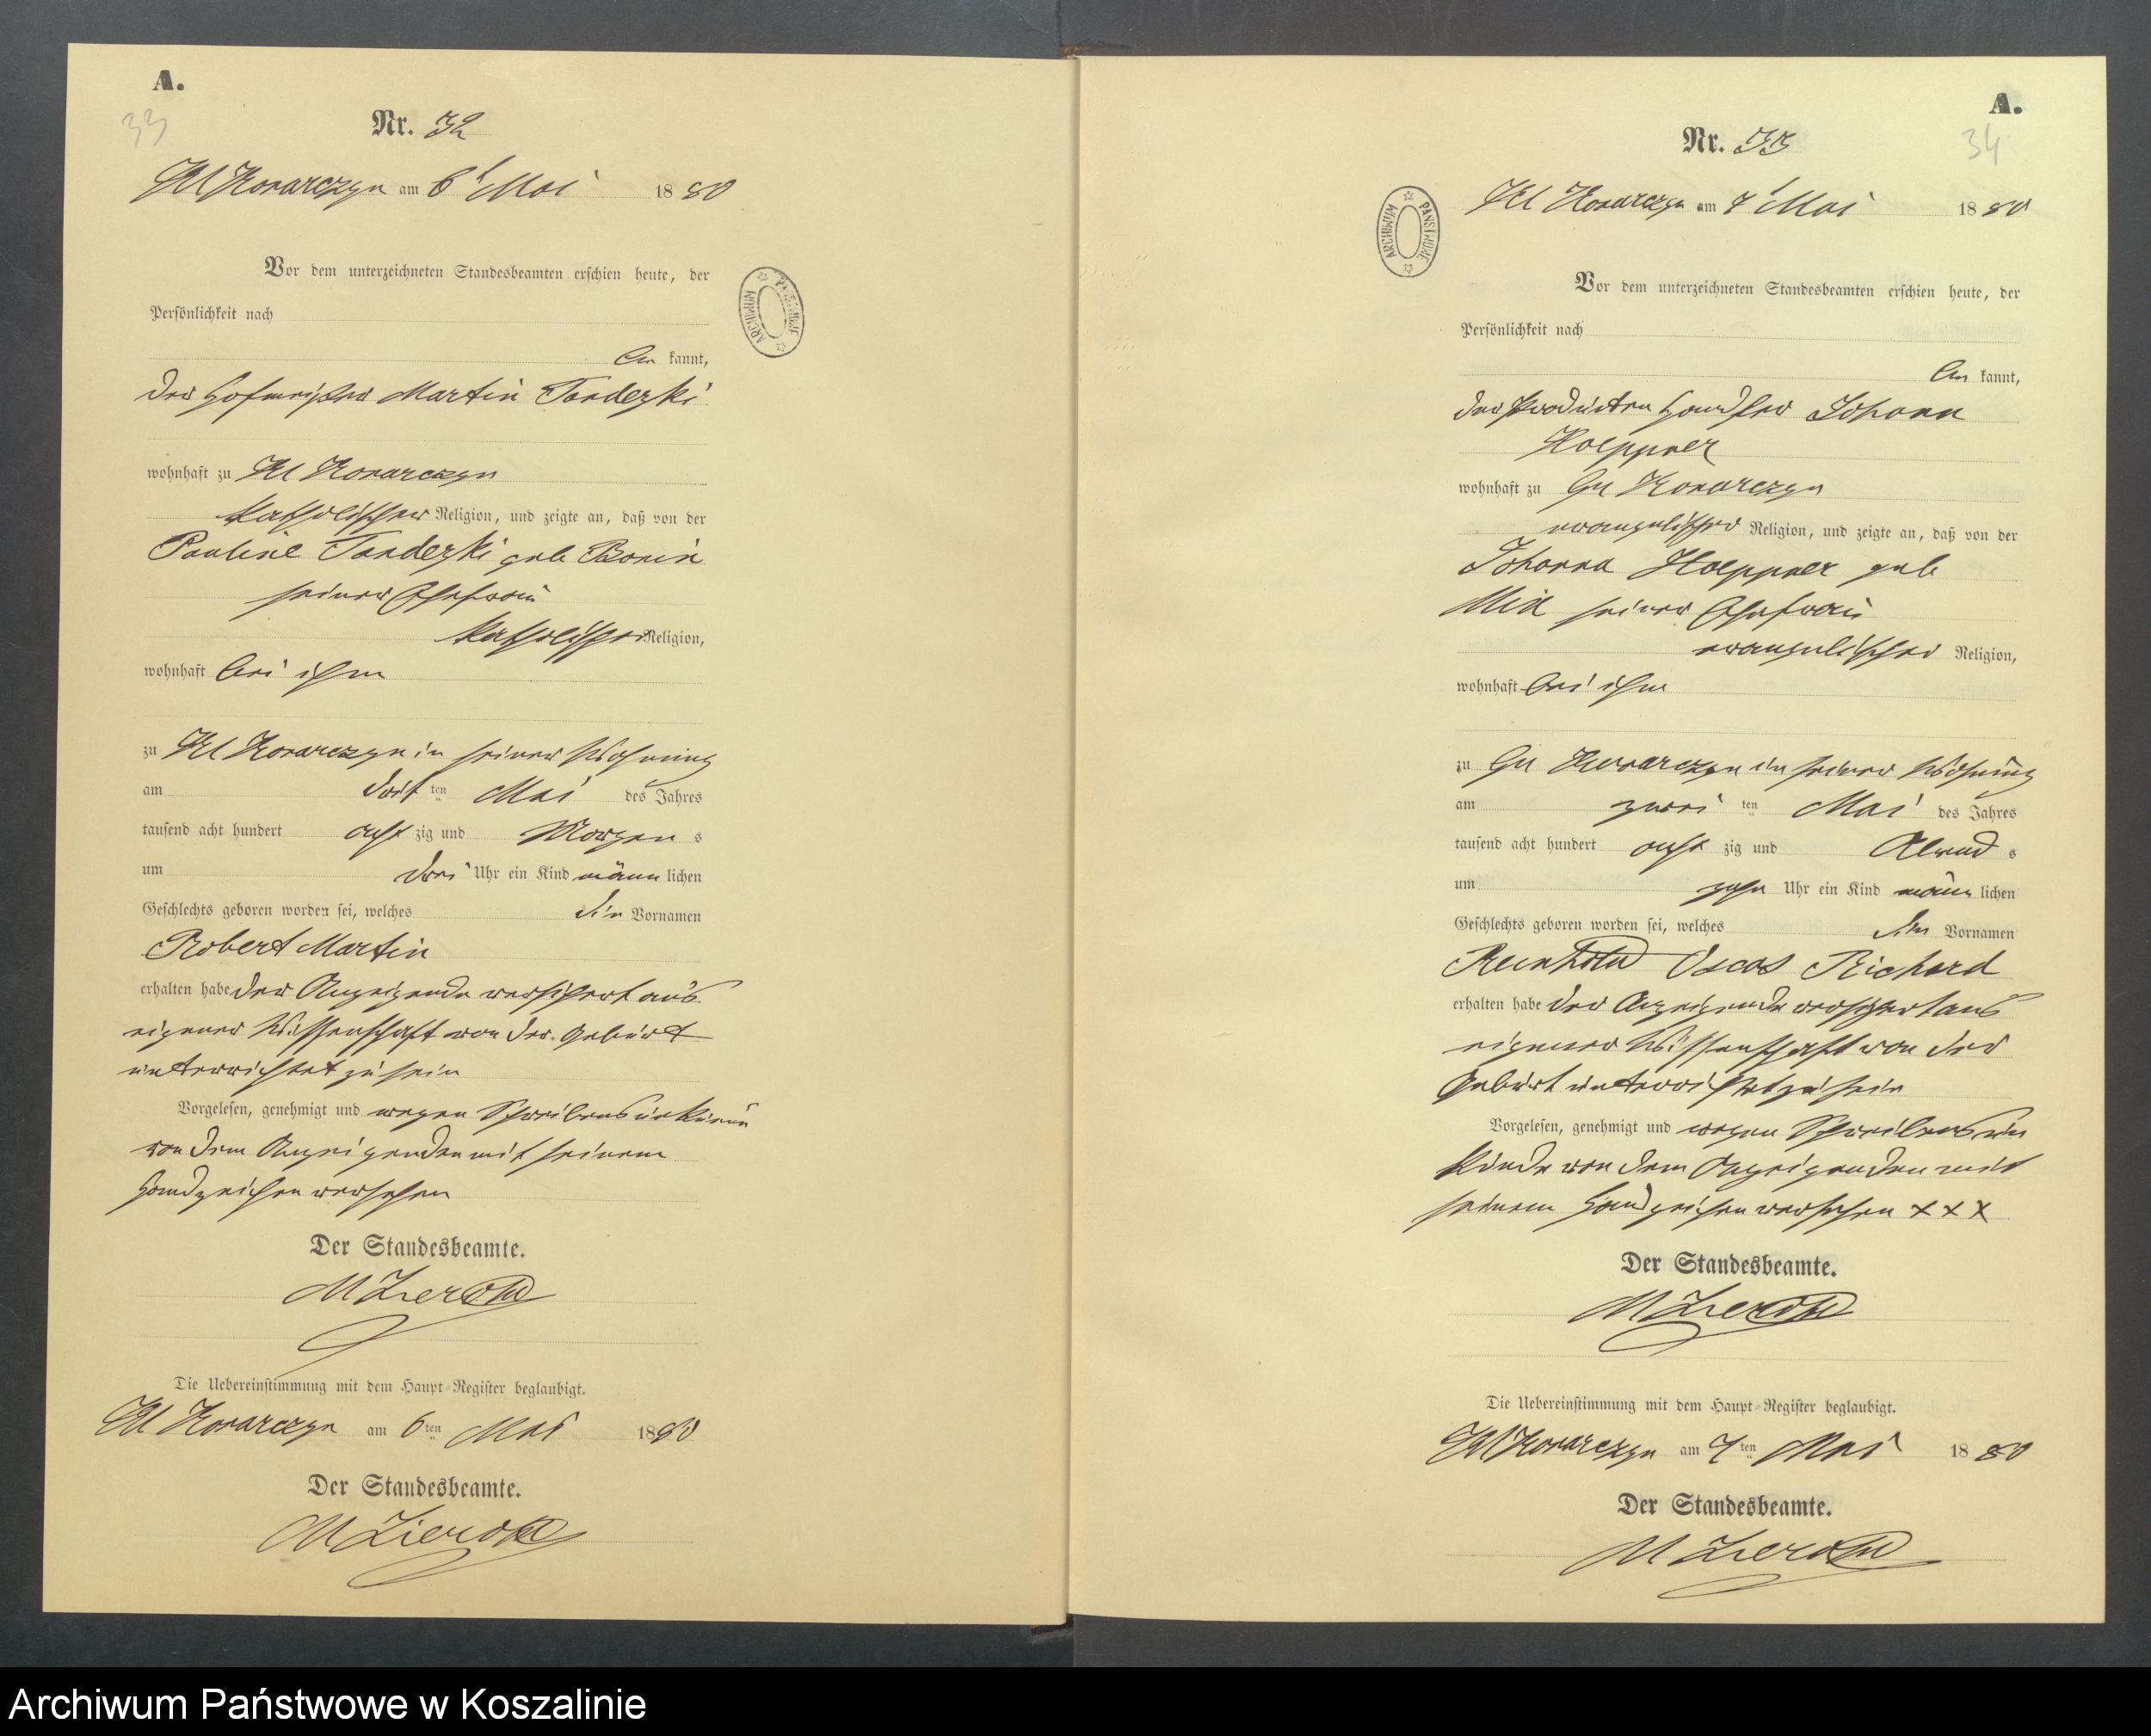 A.
33
Nr. 32
Kl Konarczyn am 6t Mai 1880
Vor dem unterzeichneten Standesbeamten erschien heute, der
Persönlichkeit nach
be kannt,
der Hofmeister Martin Tandezki
wohnhaft zu Kl Konarczyn
katholischer Religion, und zeigte an, daß von der
Pauline Tandezki geb Bonin
seiner Ehefrau
katholischer Religion,
wohnhaft bei ihm
zu Kl Konarczyn in seiner Wohnung
am drit ten Mai des Jahres
tausend acht hundert acht zig und Morgen s
um drei Uhr ein Kind männ lichen
Geschlechts geboren worden sei, welches die Vornamen
Robert Martin
erhalten habe der Anzeigende versichert aus
eigener Wissenschaft von der Geburt
unterrichtet zu sein
Vorgelesen, genehmigt und wegen Schreibensunkunde
von dem Anzeigenden mit seinem
Handzeichen versehen
Der Standesbeamte.
Die Uebereinstimmung mit dem Haupt-Register beglaubigt.
Kl Konarczyn am 6ten Mai 1880
Der Standesbeamte.
A.
34
Nr. 33
Kl Konarczyn am 7t Mai 1880
ARCHIWUM PAŃSTWOWE
Vor dem unterzeichneten Standesbeamten erschien heute, der
Persönlichkeit nach
be kannt,
der Producten Händler Johann
Hoeppner
wohnhaft zu Gr Konarczyn
evangelischer Religion, und zeigte an, daß von der
Johanna Hoeppner geb
seiner Ehefrau
evangelischer Religion,
wohnhaft bei ihm
zu Gr Konarczyn in seiner Wohnung
am zwei ten Mai des Jahres
tausend acht hundert acht zig und Abend s
um zehn Uhr ein Kind männ lichen
Geschlechts geboren worden sei, welches die Vornamen
Reinhold Oscar Richard
erhalten habe der Anzeigende versichert aus
eigener Wissenschaft von der
Geburt unterrichtet zu sein
Vorgelesen, genehmigt und wegen Schreibensun
kunde von dem Anzeigenden mit
seinem Handzeichen versehen x x x
Der Standesbeamte.
Die Uebereinstimmung mit dem Haupt-Register beglaubigt.
Kl Konarczyn am 7ten Mai 1880
Der Standesbeamte.
Archiwum Państwowe w Koszalinie